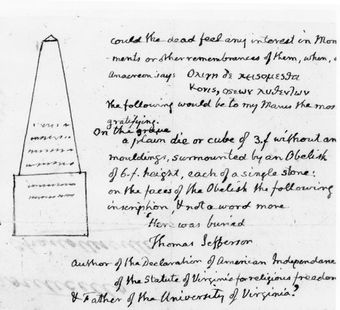 could the dead feel any interest in Mon
-ments or other remembrances of them, when, a
Anacreon says Ολιγη δε κεισομεσθα
Κονις, οστεων λυθεντων
the following would be to my Manes the mos
gratifying.
On the grave
a plain die or cube of 3.f without an
mouldings, surmounted by an Obelisk
of 6.f. height, each of a single stone:
on the faces of the Obelisk the following
inscription, & not a word more
'Here was buried
Thomas Jefferson
Author of the Declaration of American Independance
of the Statute of Virginia for religious freedom
& Father of the University of Virginia.'